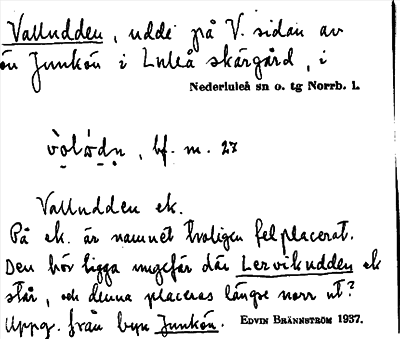 Valludden, udde på V. sidan av
ön Junkön i Luleå skärgård, i
Nederluleå sn o. tg Norrb. l.
bf. m. 27
Valludden ek.
På ek. är namnet troligen felplacerat.
Den bör ligga ungefär där Lervikudden ek
står, och denna placeras längre norr ut?
Uppg. från byn Junkön. EDVIN BRÄNNSTRÖM 1937.